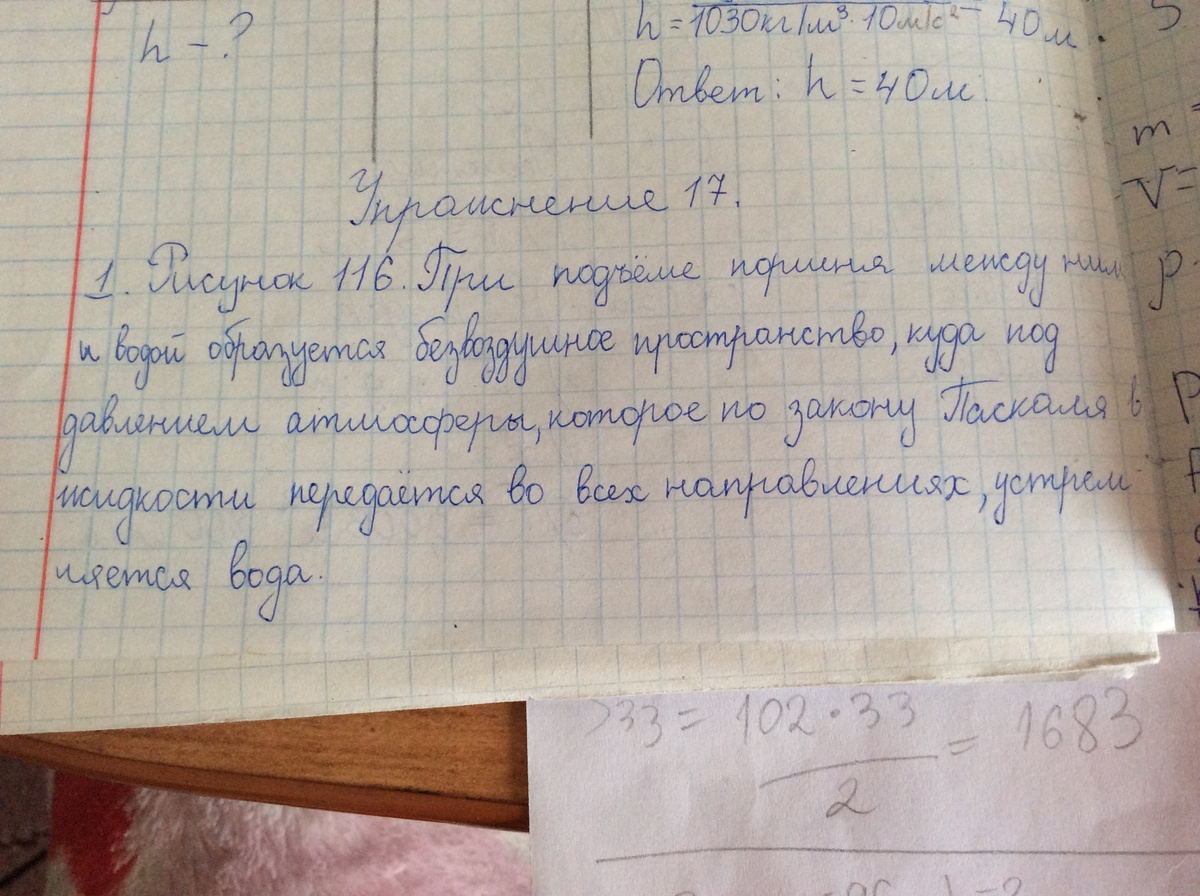 h - ?
h = 1030кг/м³·10м/с² = 40м.
Ответ: h = 40м
Упражнение 17.
1. Рисунок 116. При подъёме поршня между ним
и водой образуется безвоздушное пространство, куда под
давлением атмосферы, которое по закону Паскаля в
жидкости передаётся во всех направлениях, устрем
ляется вода.
m =
V =
p
P
S33 = 102·33 / 2 = 1683